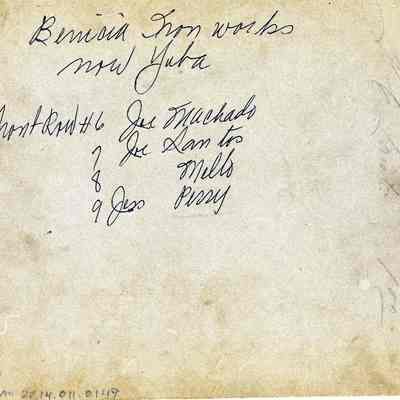 Benicia Iron works
now Yuba
Front Row #6 Joe Machado
7 Joe Santos
8 Mello
9 Jess Perry
2014.011.0149